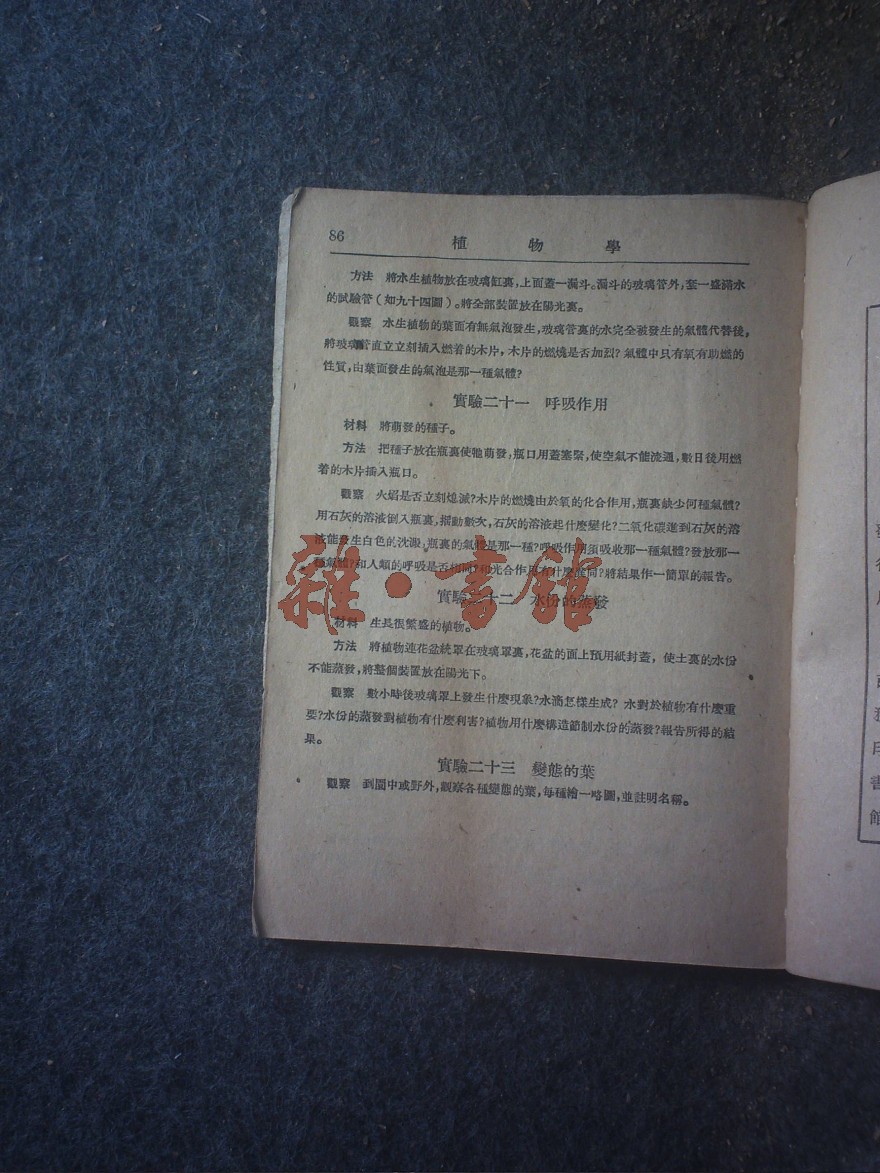 86
植物學
方法 將水生植物放在玻璃缸裏,上面蓋一漏斗。漏斗的玻璃管外,套一盛滿水
的試驗管(如九十四圖)。將全部裝置放在陽光裏。
觀察 水生植物的葉面有無氣泡發生,玻璃管裏的水完全被發生的氣體代替後,
將玻璃管直立立刻插入燃着的木片,木片的燃燒是否加烈?氣體中只有氧有助燃的
性質,由葉面發生的氣泡是那一種氣體?
實驗二十一 呼吸作用
材料 將萌發的種子。
方法 把種子放在瓶裏使牠萌發,瓶口用蓋塞緊,使空氣不能流通,數日後用燃
着的木片插入瓶口。
觀察 火焰是否立刻熄滅?木片的燃燒由於氧的化合作用,瓶裏缺少何種氣體?
用石灰的溶液倒入瓶裏,搖動數次,石灰的溶液起什麼變化?二氧化碳進到石灰的溶
液能發生白色的沈澱,瓶裏的氣體是那一種?呼吸作用須吸收那一種氣體?發放那一
種氣體?和人類的呼吸是否相同?和光合作用有什麼差同?將結果作一簡單的報告。
雜·書館
實驗二十二 水份的蒸發
材料 生長很繁盛的植物。
方法 將植物連花盆統罩在玻璃罩裏,花盆的面上預用紙封蓋,使土裏的水份
不能蒸發,將整個裝置放在陽光下。
觀察 數小時後玻璃罩上發生什麼現象?水滴怎樣生成?水對於植物有什麼重
要?水份的蒸發對植物有什麼利害?植物用什麼構造節制水份的蒸發?報告所得的結
果。
實驗二十三 變態的葉
觀察 到園中或野外,觀察各種變態的葉,每種繪一略圖,並註明名稱。
印
書
館